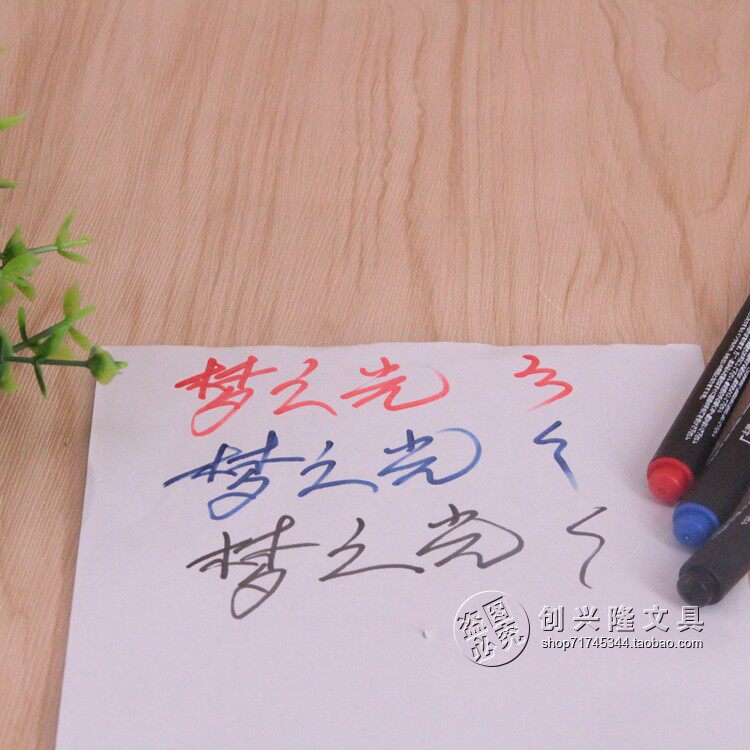 梦之光
梦之光
梦之光
盗图必究
创兴隆文具
shop71745344.taobao.com